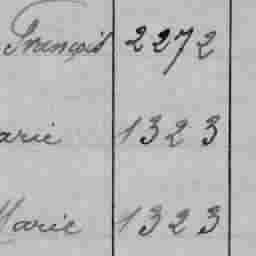 François 2272
arie 1323
Marie 1323